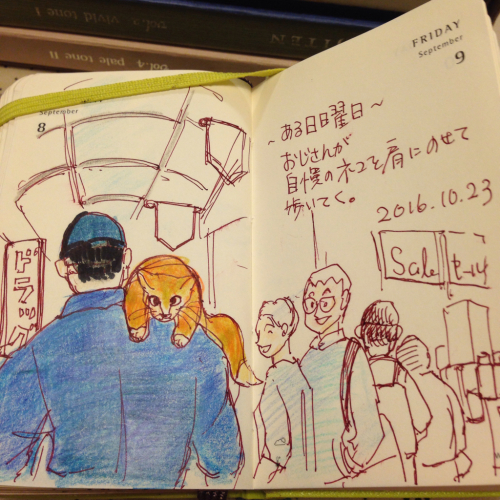 vol.x vivid tone I
vol.4 pale tone II
September
8
FRIDAY
September
9
~ある日曜日~
おじさんが
自慢のネコを肩にのせて
歩いてく。
2016.10.23
ドラッグ
Sale
セール